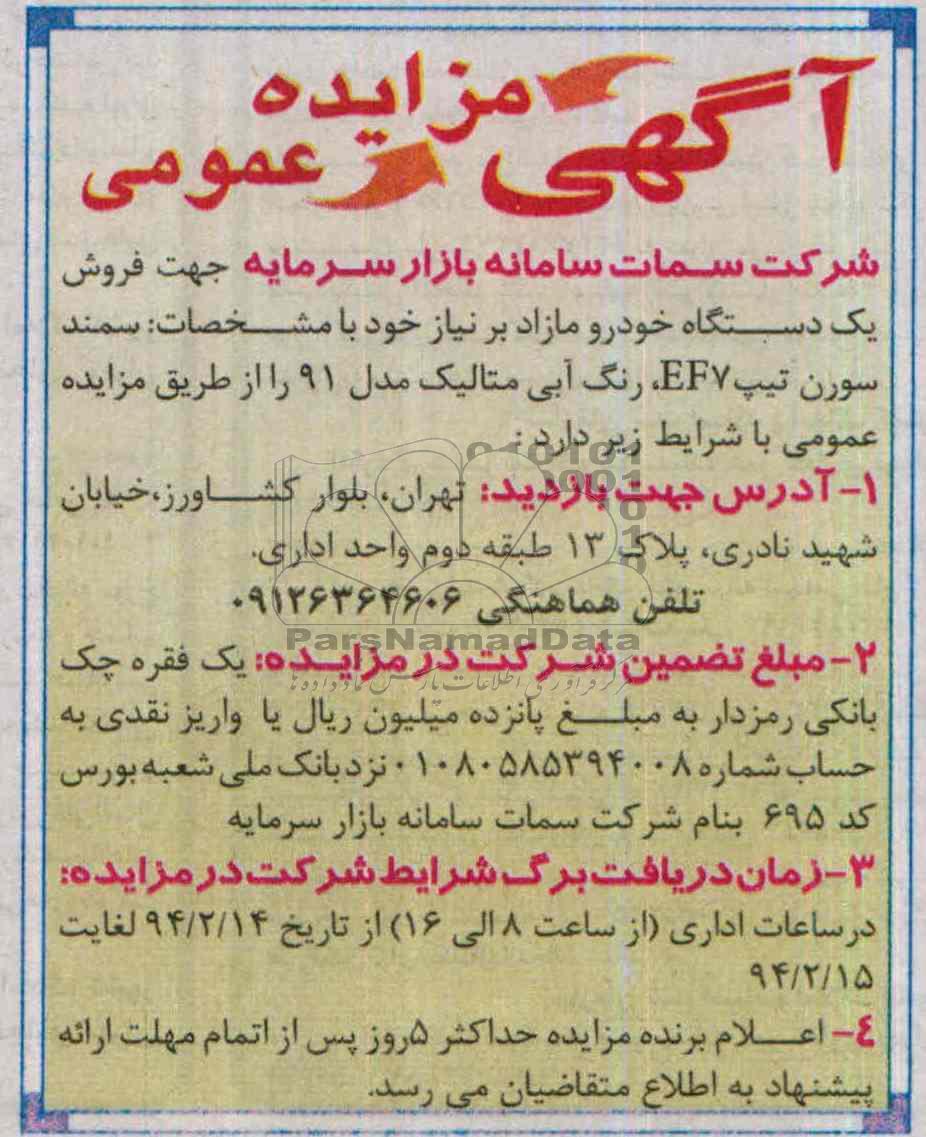 آگهی مزایده
عمومی
شرکت سمات سامانه بازار سرمایه جهت فروش
یک دستگاه خودرو مازاد بر نیاز خود با مشخصات: سمند
سورن تیپ EF۷، رنگ آبی متالیک مدل ۹۱ را از طریق مزایده
عمومی با شرایط زیر دارد :
۱- آدرس جهت بازدید: تهران، بلوار کشاورز،خیابان
شهید نادری، پلاک ۱۳ طبقه دوم واحد اداری.
تلفن هماهنگی ۰۹۱۲۶۳۶۴۶۰۶
ParsNamadData
۲- مبلغ تضمین شرکت در مزایده: یک فقره چک
مرکز فرآوری اطلاعات پارس نماد داده ها
بانکی رمزدار به مبلغ پانزده میلیون ریال یا واریز نقدی به
حساب شماره ۰۱۰۸۰۵۸۵۳۹۴۰۰۸ نزد بانک ملی شعبه بورس
کد ۶۹۵ بنام شرکت سمات سامانه بازار سرمایه
۳- زمان دریافت برگ شرایط شرکت در مزایده:
در ساعات اداری (از ساعت ۸ الی ۱۶) از تاریخ ۹۴/۲/۱۴ لغایت
۹۴/۲/۱۵
٤- اعلام برنده مزایده حداکثر ۵روز پس از اتمام مهلت ارائه
پیشنهاد به اطلاع متقاضیان می رسد.